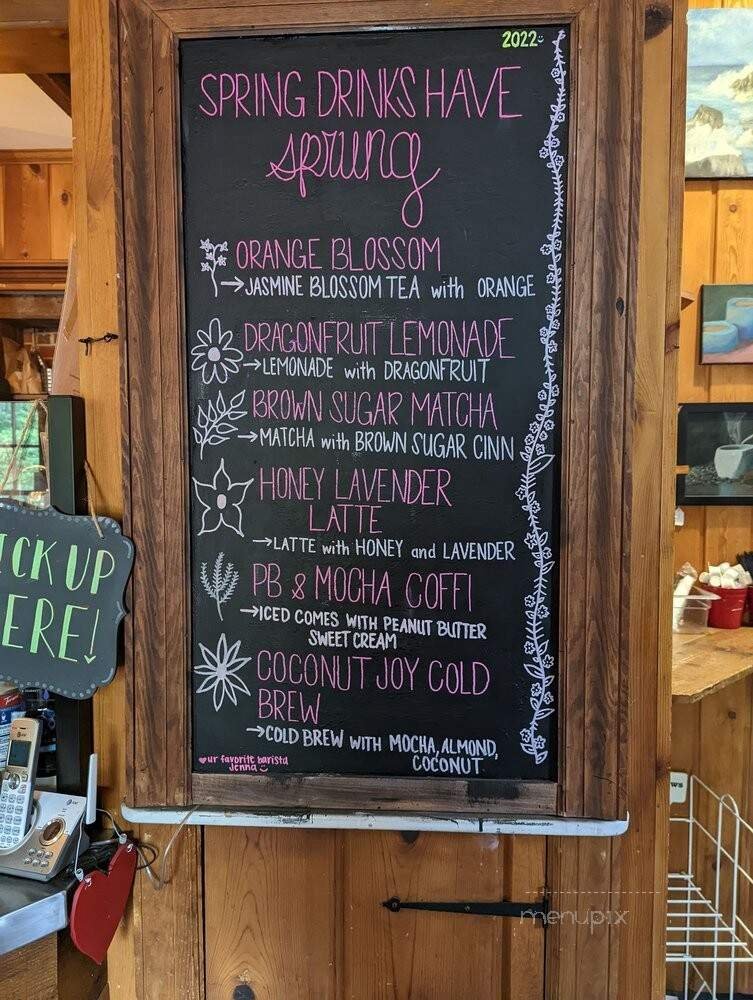 2022
SPRING DRINKS HAVE
sprung
ORANGE BLOSSOM
→JASMINE BLOSSOM TEA with ORANGE
DRAGONFRUIT LEMONADE
→LEMONADE with DRAGONFRUIT
BROWN SUGAR MATCHA
→MATCHA with BROWN SUGAR CINN
HONEY LAVENDER
LATTE
→LATTE with HONEY and LAVENDER
PB & MOCHA COFFI
→ICED COMES WITH PEANUT BUTTER
SWEET CREAM
COCONUT JOY COLD
BREW
→COLD BREW WITH MOCHA, ALMOND,
COCONUT
♥ur favorite barista
Jenna
ICK UP
ERE!
at&t
menupix